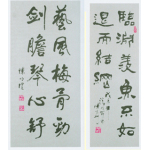 臨渊羨魚不如
退而結網
藝風梅骨勁
劍膽琴心舒